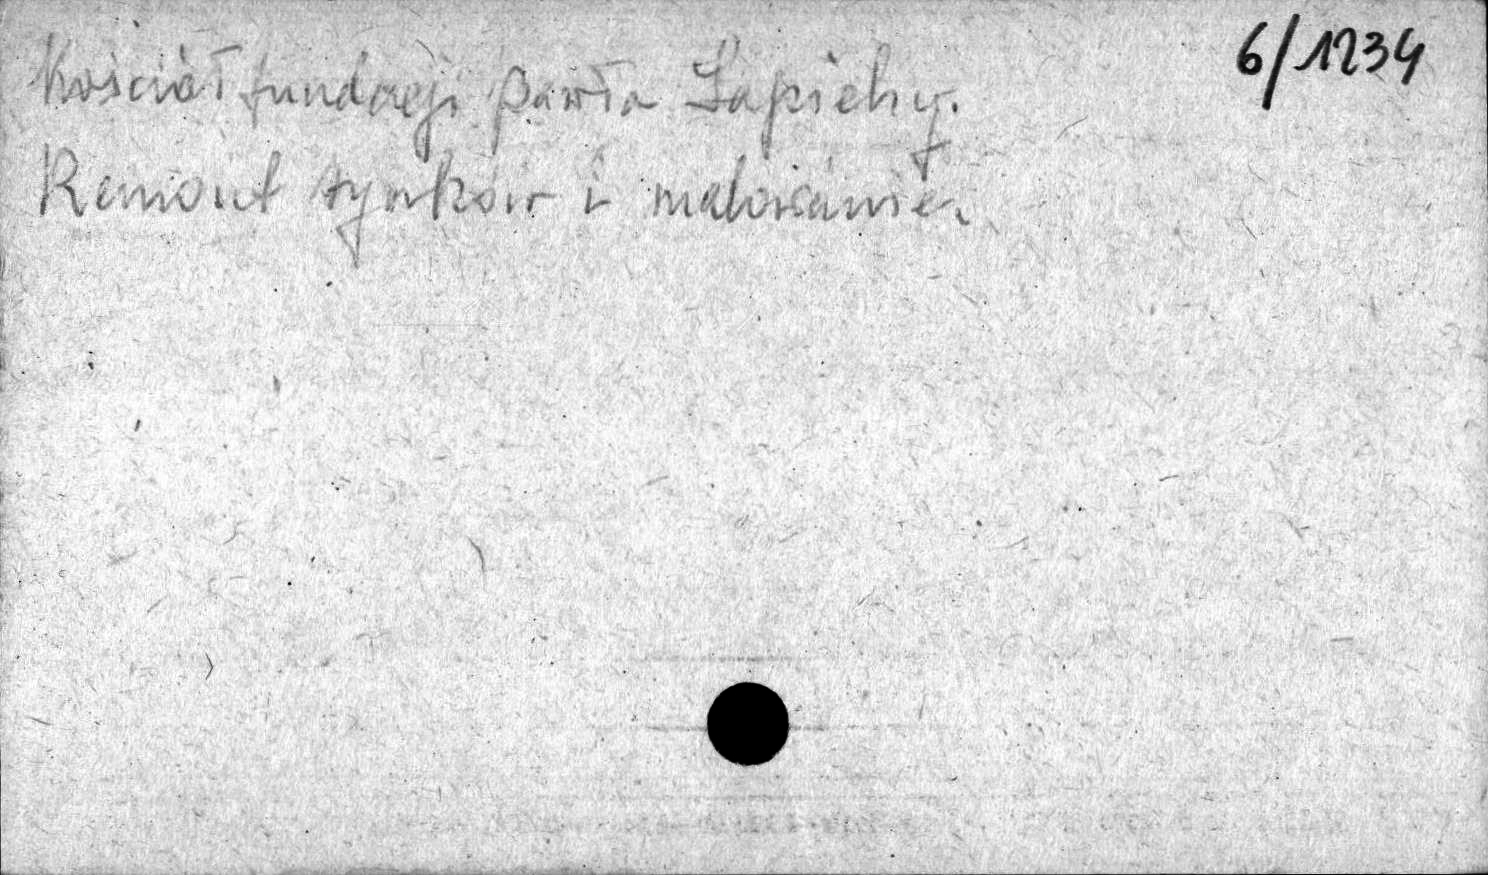 6/1234
Kościół fundacji Pawła Sapiehy.
Remont tynków i malowanie.